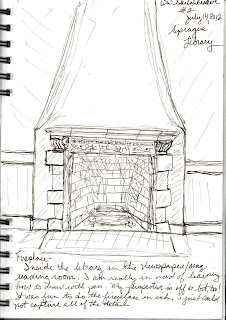 #2
July 14 2012
Sprague
Library
Fireplace-
Inside the library, in the newspaper/mag
reading room. I am really in need of learning
how to draw with pen. My perspective is off as
It was fun to do the fireplace in ink. I just could
not capture all of the detail.